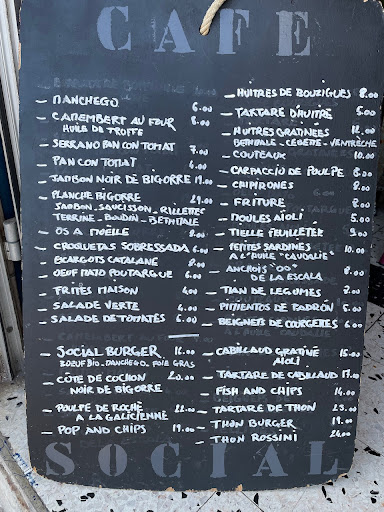 CAFE
— MANCHEGO 6.00
— CAMEMBERT AU FOUR 8.00
HUILE DE TRUFFE
— SERRANO PAN CON TOMAT 7.00
— PAN CON TOMAT 4.00
— JAMBON NOIR DE BIGORRE 19.00
— PLANCHE BIGORRE 29.00
JAMBON - SAUCISSON - RILLETTES
TERRINE - BOUDIN - BETHMALE
— OS A MOELLE 8.00
— CROQUETAS SOBRESSADA 6.00
— ESCARGOTS CATALANE 8.00
— OEUF MAYO POUTARGUE 6.00
— FRITES MAISON 4.00
— SALADE VERTE 6.00
— SALADE DE TOMATES 6.00
— SOCIAL BURGER 16.00
BOEUF BIO - MANCHEGO - FOIE GRAS
— CÔTE DE COCHON 20.00
NOIR DE BIGORRE
— POULPE DE ROCHE 22.00
A LA GALICIENNE
— POP AND CHIPS 19.00
— HUITRES DE BOUZIGUES 8.00
— TARTARE D'HUITRE 5.00
— HUITRES GRATINEES 12.00
BETHMALE - CEBETTE - VENTRÈCHE
— COUTEAUX 10.00
— CARPACCIO DE POULPE 8.00
— CHIPIRONES 8.00
— FRITURE 8.00
— MOULES AIOLI 7.00
— TIELLE FEUILLETEE 9.00
— PETITES SARDINES 10.00
A L'HUILE "CAUDALIE"
— ANCHOIS "OO" 8.00
DE LA ESCALA
— TIAN DE LEGUMES 7.00
— PIMIENTOS DE PADRÓN 6.00
— BEIGNETS DE COURGETTES 6.00
— CABILLAUD GRATINÉ 15.00
AIOLI
— TARTARE DE CABILLAUD 17.00
— FISH AND CHIPS 14.00
— TARTARE DE THON 23.00
— THON BURGER 19.00
— THON ROSSINI 24.00
SOCIAL